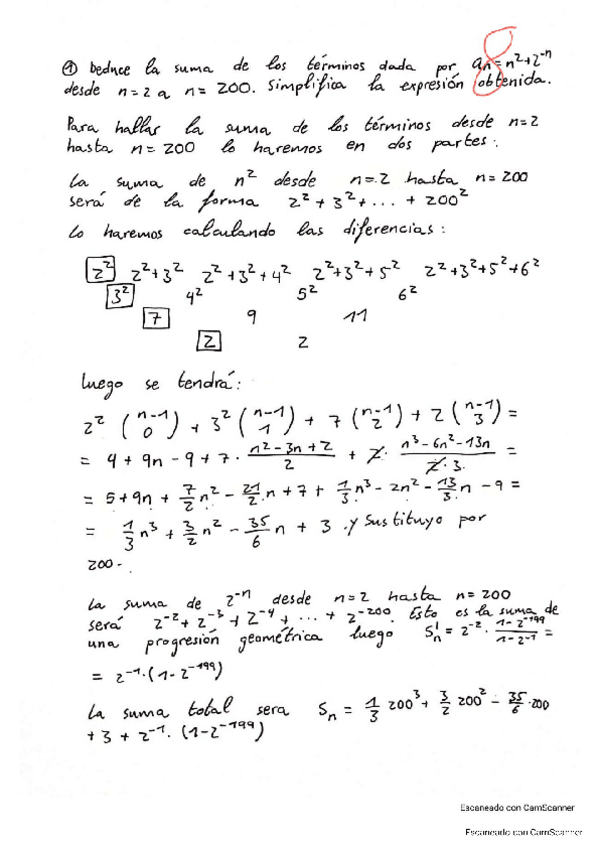 ① Deduce la suma de los términos dada por an = n²+2⁻ⁿ
desde n=2 a n=200. Simplifica la expresión obtenida.
Para hallar la suma de los términos desde n=2
hasta n=200 lo haremos en dos partes.
La suma de n² desde n=2 hasta n=200
será de la forma 2²+3²+...+200²
lo haremos calculando las diferencias:
2² 2²+3² 2²+3²+4² 2²+3²+5² 2²+3²+5²+6²
3² 4² 5² 6²
7 9 11
2 2
luego se tendrá:
2² (n-1 0) + 3² (n-1 1) + 7 (n-1 2) + 2 (n-1 3) =
= 4 + 9n - 9 + 7 · (n²-3n+2)/2 + 2 · (n³-6n²-13n)/(2·3) =
= 5 + 9n + 7/2 n² - 21/2 n + 7 + 1/3 n³ - 2n² - 13/3 n - 9 =
= 1/3 n³ + 3/2 n² - 35/6 n + 3 . y sustituyo por
200.
la suma de 2⁻ⁿ desde n=2 hasta n=200
será 2⁻²+2⁻³+2⁻⁴+...+2⁻²⁰⁰. Esto es la suma de
una progresión geométrica luego S'n = 2⁻² · (1-2⁻¹⁹⁹)/(1-2⁻¹) =
= 2⁻¹·(1-2⁻¹⁹⁹)
La suma total sera Sn = 1/3 200³ + 3/2 200² - 35/6 · 200
+ 3 + 2⁻¹ · (1-2⁻¹⁹⁹)
Escaneado con CamScanner
Escaneado con CamScanner